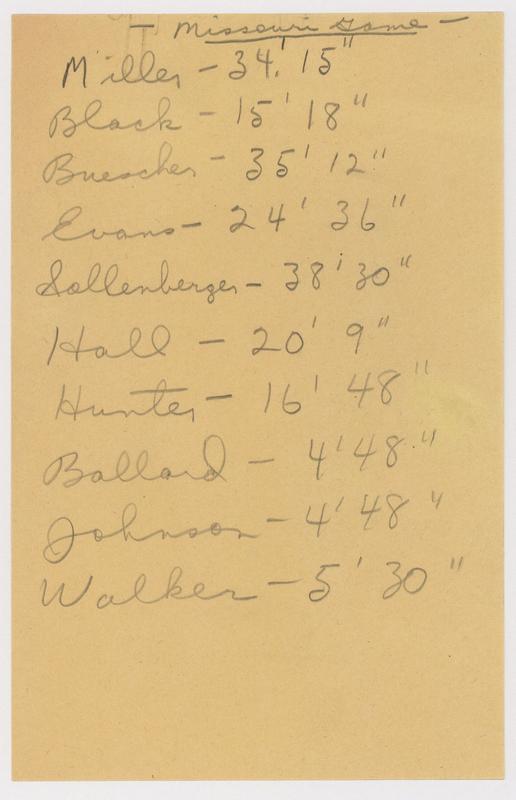 - Missouri Game -
Miller - 34' 15"
Black - 15' 18"
Buescher - 35' 12"
Evans - 24' 36"
Sollenberger - 38' 30"
Hall - 20' 9"
Hunter - 16' 48"
Ballard - 4' 48"
Johnson - 4' 48"
Walker - 5' 30"